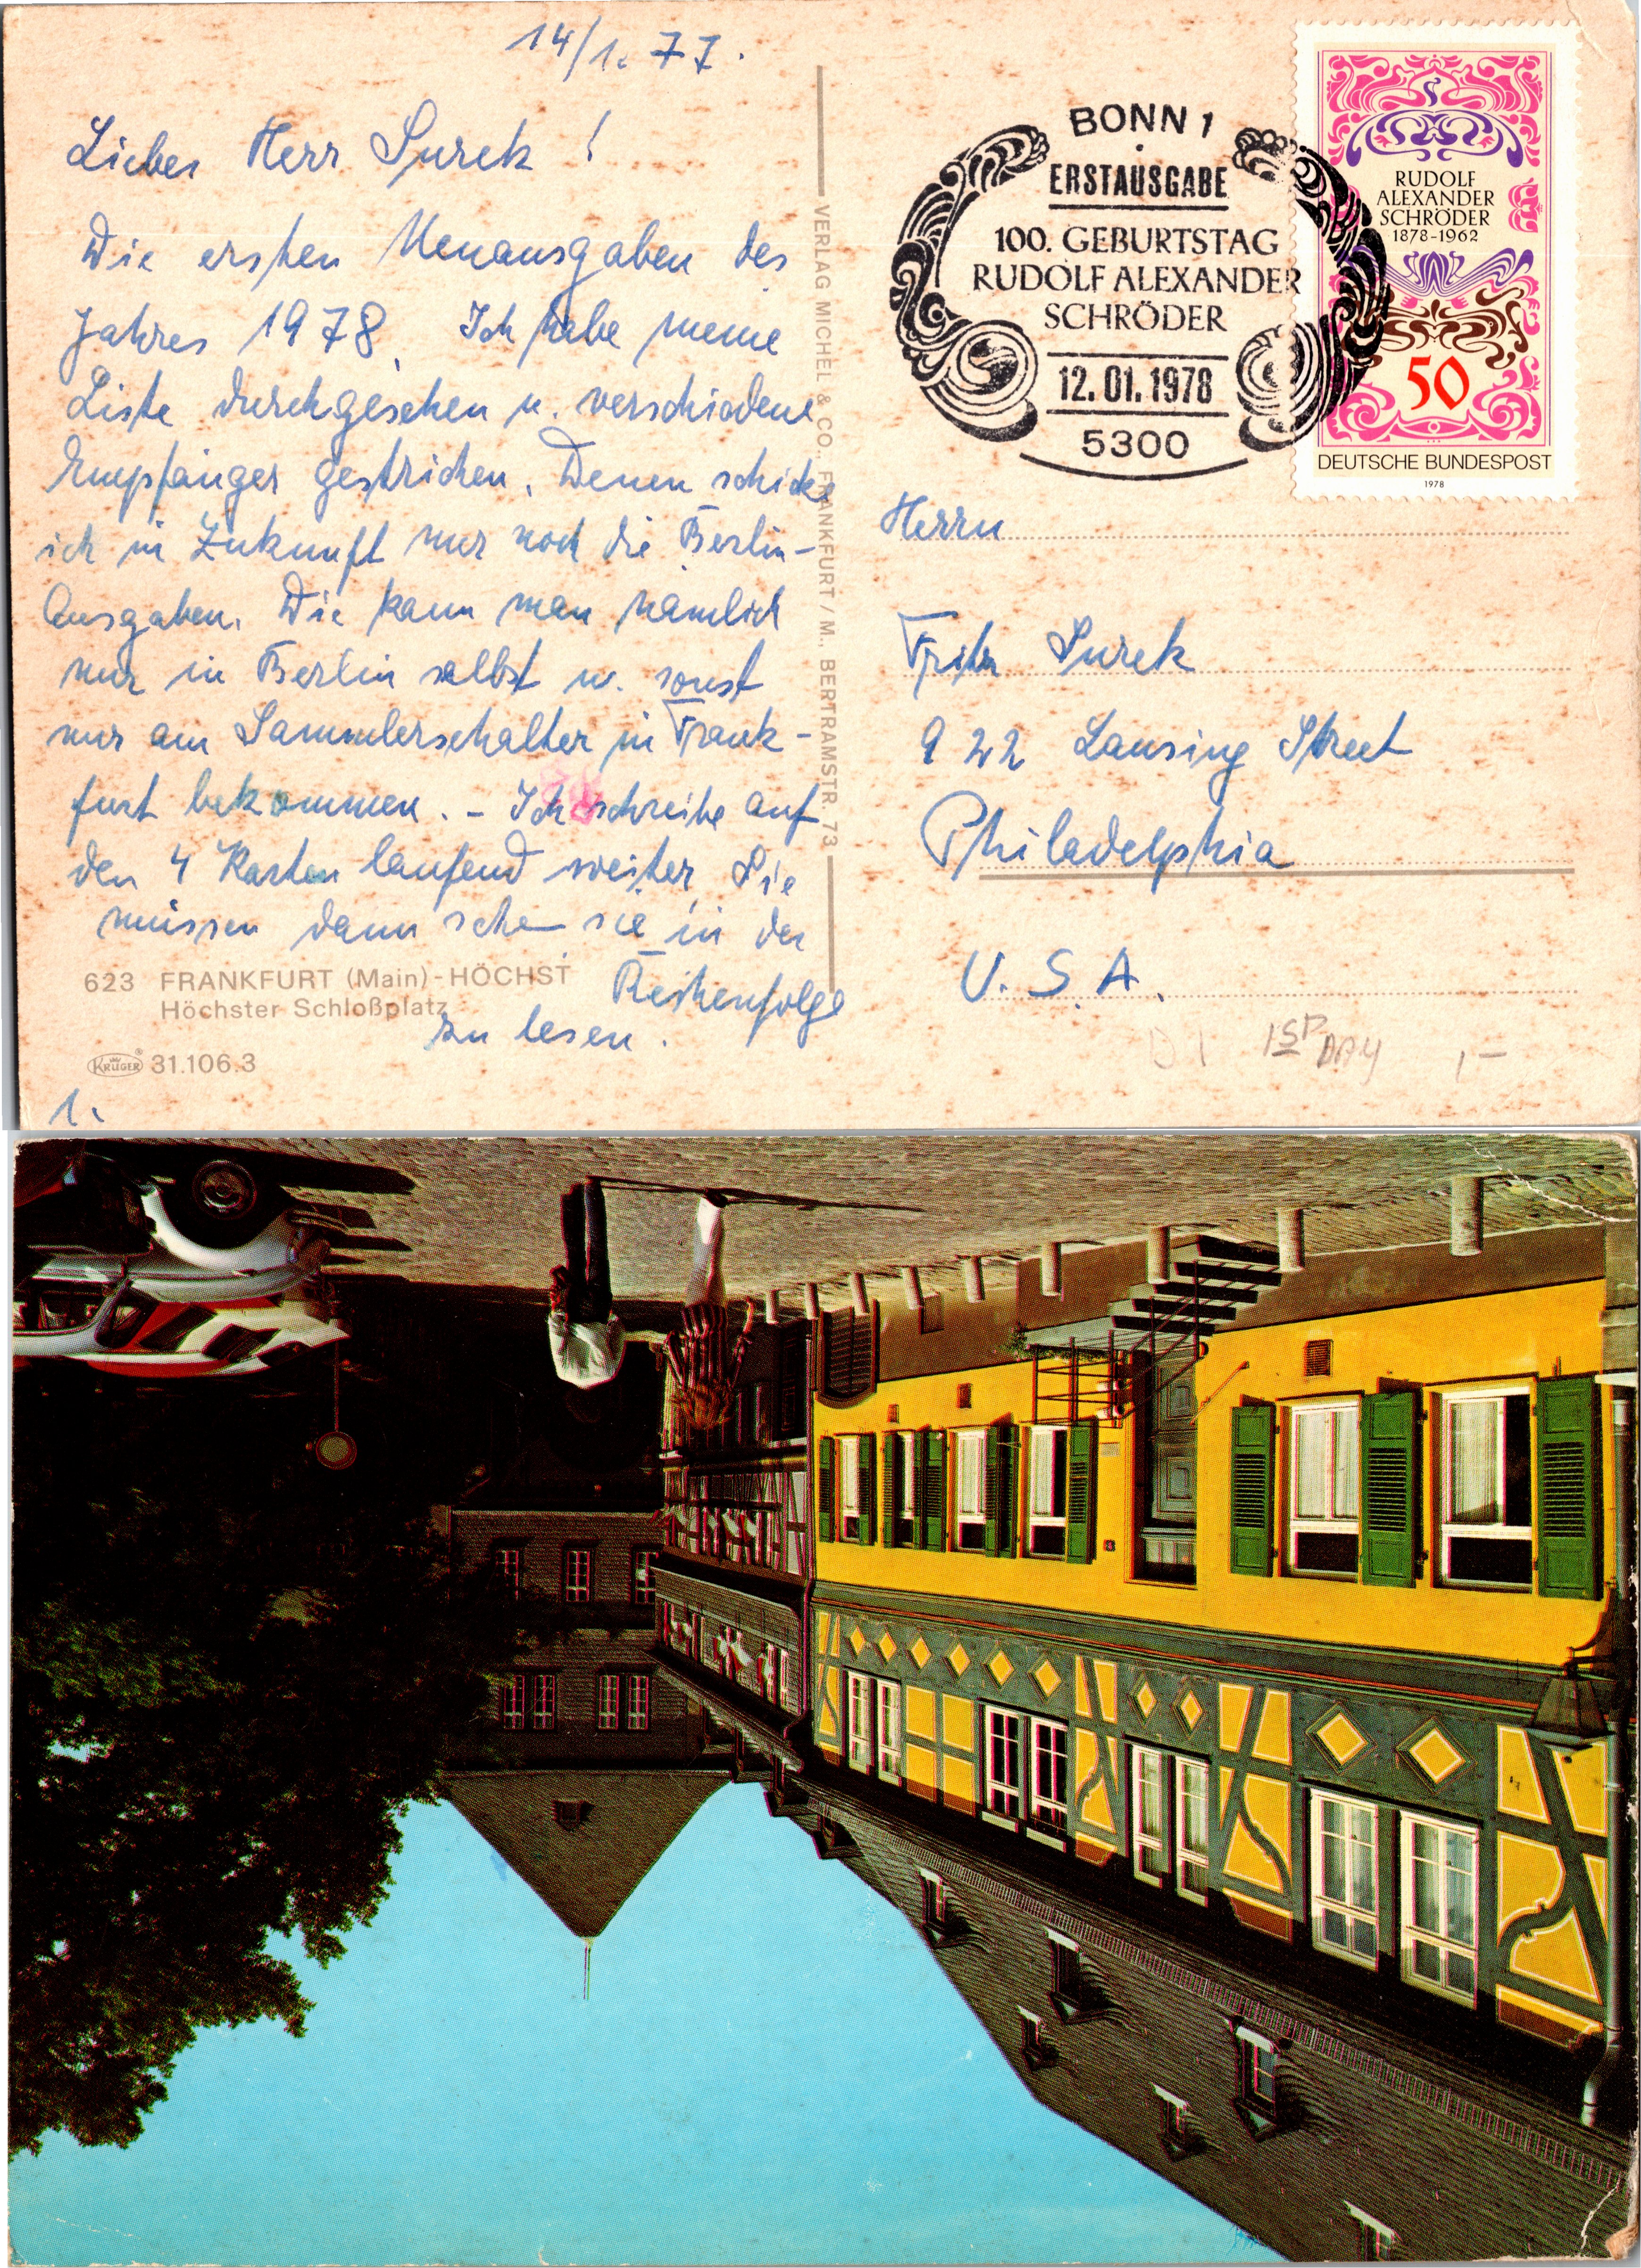 14/1. 77.
Lieber Herr Surek!
Die ersten Neuausgaben des
Jahres 1978. Ich habe meine
Liste durchgesehen u. verschiedene
Empfänger gestrichen. Denen schicke
ich in Zukunft nur noch die Berlin-
Ausgaben. Die kann man nämlich
nur in Berlin selbst u. sonst
nur am Sammlerschalter in Frank-
furt bekommen. - Ich schreibe auf
den 4 Karten laufend weiter, Sie
müssen dann sie in der
Reihenfolge
zu lesen.
623 FRANKFURT (Main)-HÖCHST
Höchster Schloßplatz
KRÜGER 31.106.3
1.
VERLAG MICHEL & CO., FRANKFURT / M., BERTRAMSTR. 73
BONN 1
ERSTAUSGABE
100. GEBURTSTAG
RUDOLF ALEXANDER
SCHRÖDER
12.01.1978
5300
RUDOLF
ALEXANDER
SCHRÖDER
1878-1962
50
DEUTSCHE BUNDESPOST
1978
Herrn
Fritz Surek
922 Lansing Street
Philadelphia
U.S.A.
1ST DAY 1,-